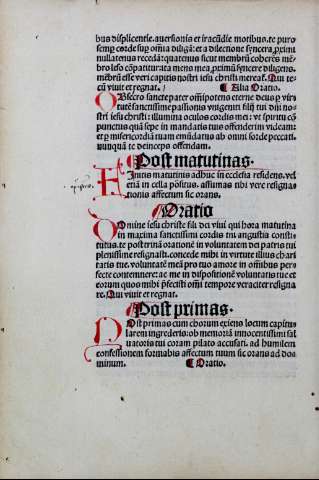 bus displicentie. auersionis et iracūdie motibus. te puro
semꝑ corde suꝑ om̄ia diligā: et a dilectione syncera ꝓximi
nullatenus recedā: quatenus sicut membrū corporis mē-
bro leso cōpatitur
cū viuit et regnat.) ¶ Alia Oratio.
OBsecro sancte pater om̄ipotens eterne deus ꝑ vir
tutē sanctissime passionis vnigeniti filij tui dn̄i no
stri iesu christi: illumina oculos cordis mei: vt spiritu cō
punctus quā sepe in mandatis tuis offenderim videam:
et ꝑ misericordiā tuam emūdatus ab omni sorde peccati.
nunquā te deinceps offendam.
Post matutinas.
FInitis matutinis adhuc in ecclesia residens. vel
etiā in cella positus. assumas tibi vere resignas
tionis affectum sic orans.
Oratio
DOmine iesu christe fili dei viui qui hora matutina
in maxima sanctissimi cordis tui angustia consti-
tutus. te post trinā orationē in voluntatem dei patris tui
plenissime resignasti. concede mihi in virtute illius chari
tatis tue. voluntatē meā pro tuo amore in omnibus per
fecte contemnere: ac me in dispositionē voluntatis tue et
eorum quos mihi ꝑfecisti om̄i tempore veraciter resigna
re. Qui viuit et regnat.
Post primas.
POst primas cum chorum exiens locum capitus
larem ingrederis: ob memoriā innocentissimi sal
uatoris tui coram pilato accusati. ad humilem
confessionem formabis affectum tuum sic orans ad dos
minum. ¶ Oratio.